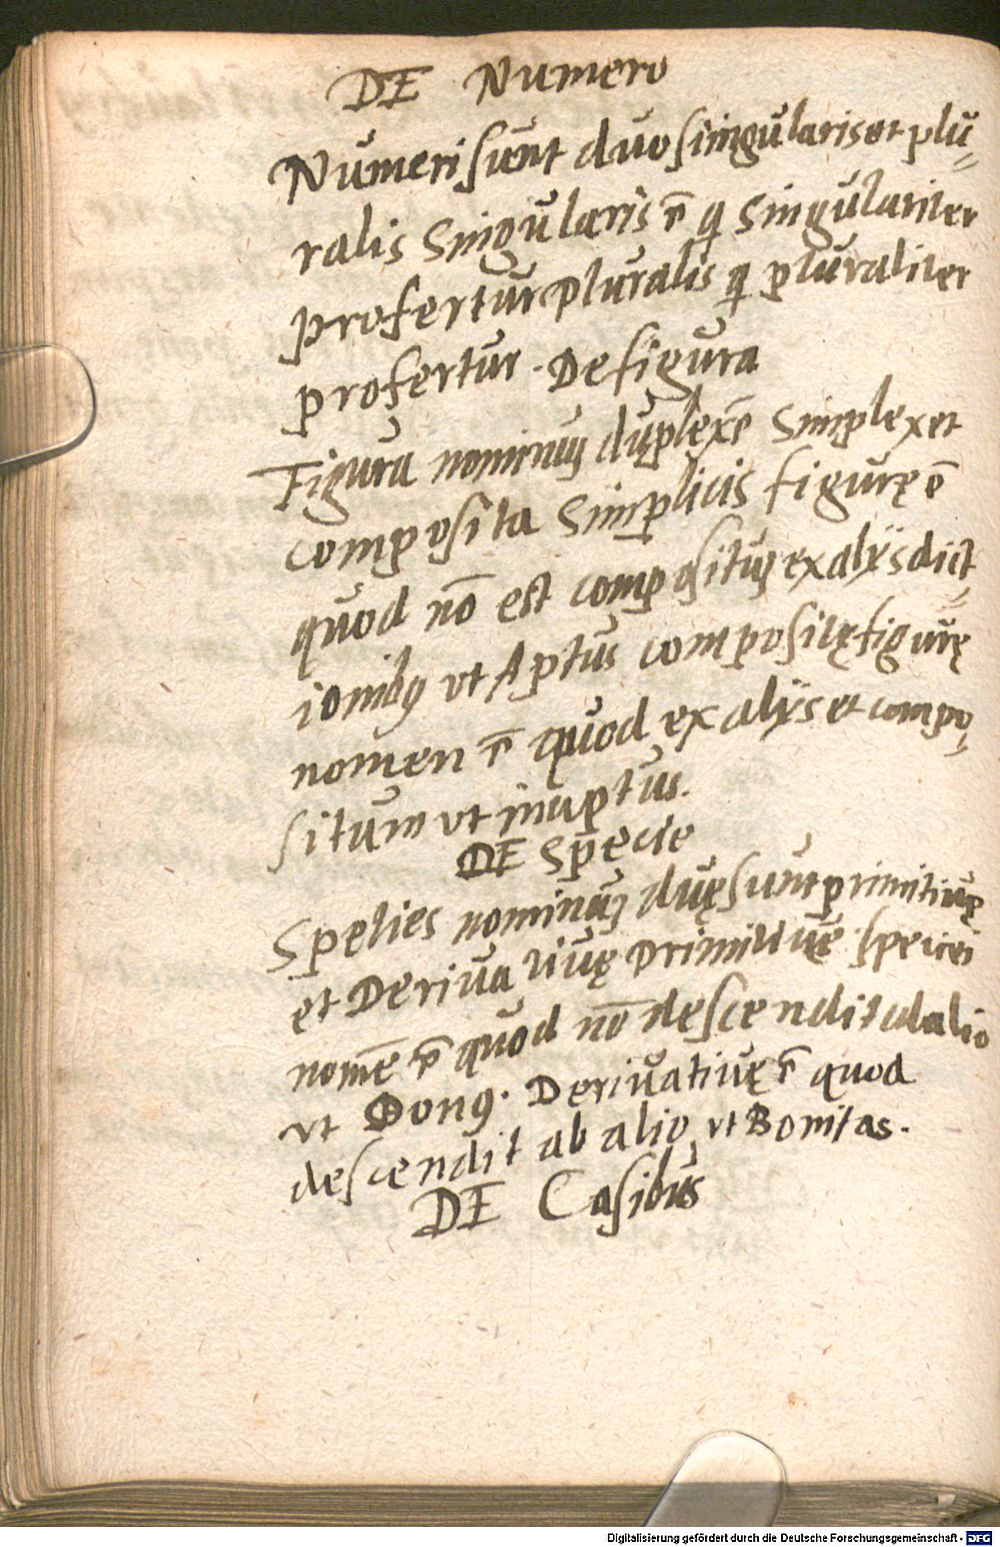 DE Numero
Numeri sunt duo singularis et plu=
ralis Singularis ē q̄ Singulariter
profertur pluralis q̄ pluraliter
profertur. De figura
Figura nominuȝ duplex ē Simplex et
composita Simplicis figurę ē
quod nō est composituȝ ex alijs dict=
ionibꝰ vt Aptus compositę figurę
nomen ē quod ex alijs et compo=
situm vt ineptus.
DE Specie
Spęties nominuȝ duę sunt primitiuę
et Deriuatiuę primitiuę speciei
nomē ē quod nō descendit ab alio
vt Bonꝰ. Deriuatiuę ē quod
descendit ab alio vt Bonitas.
DE Casibus
Digitalisierung gefördert durch die Deutsche Forschungsgemeinschaft - DFG